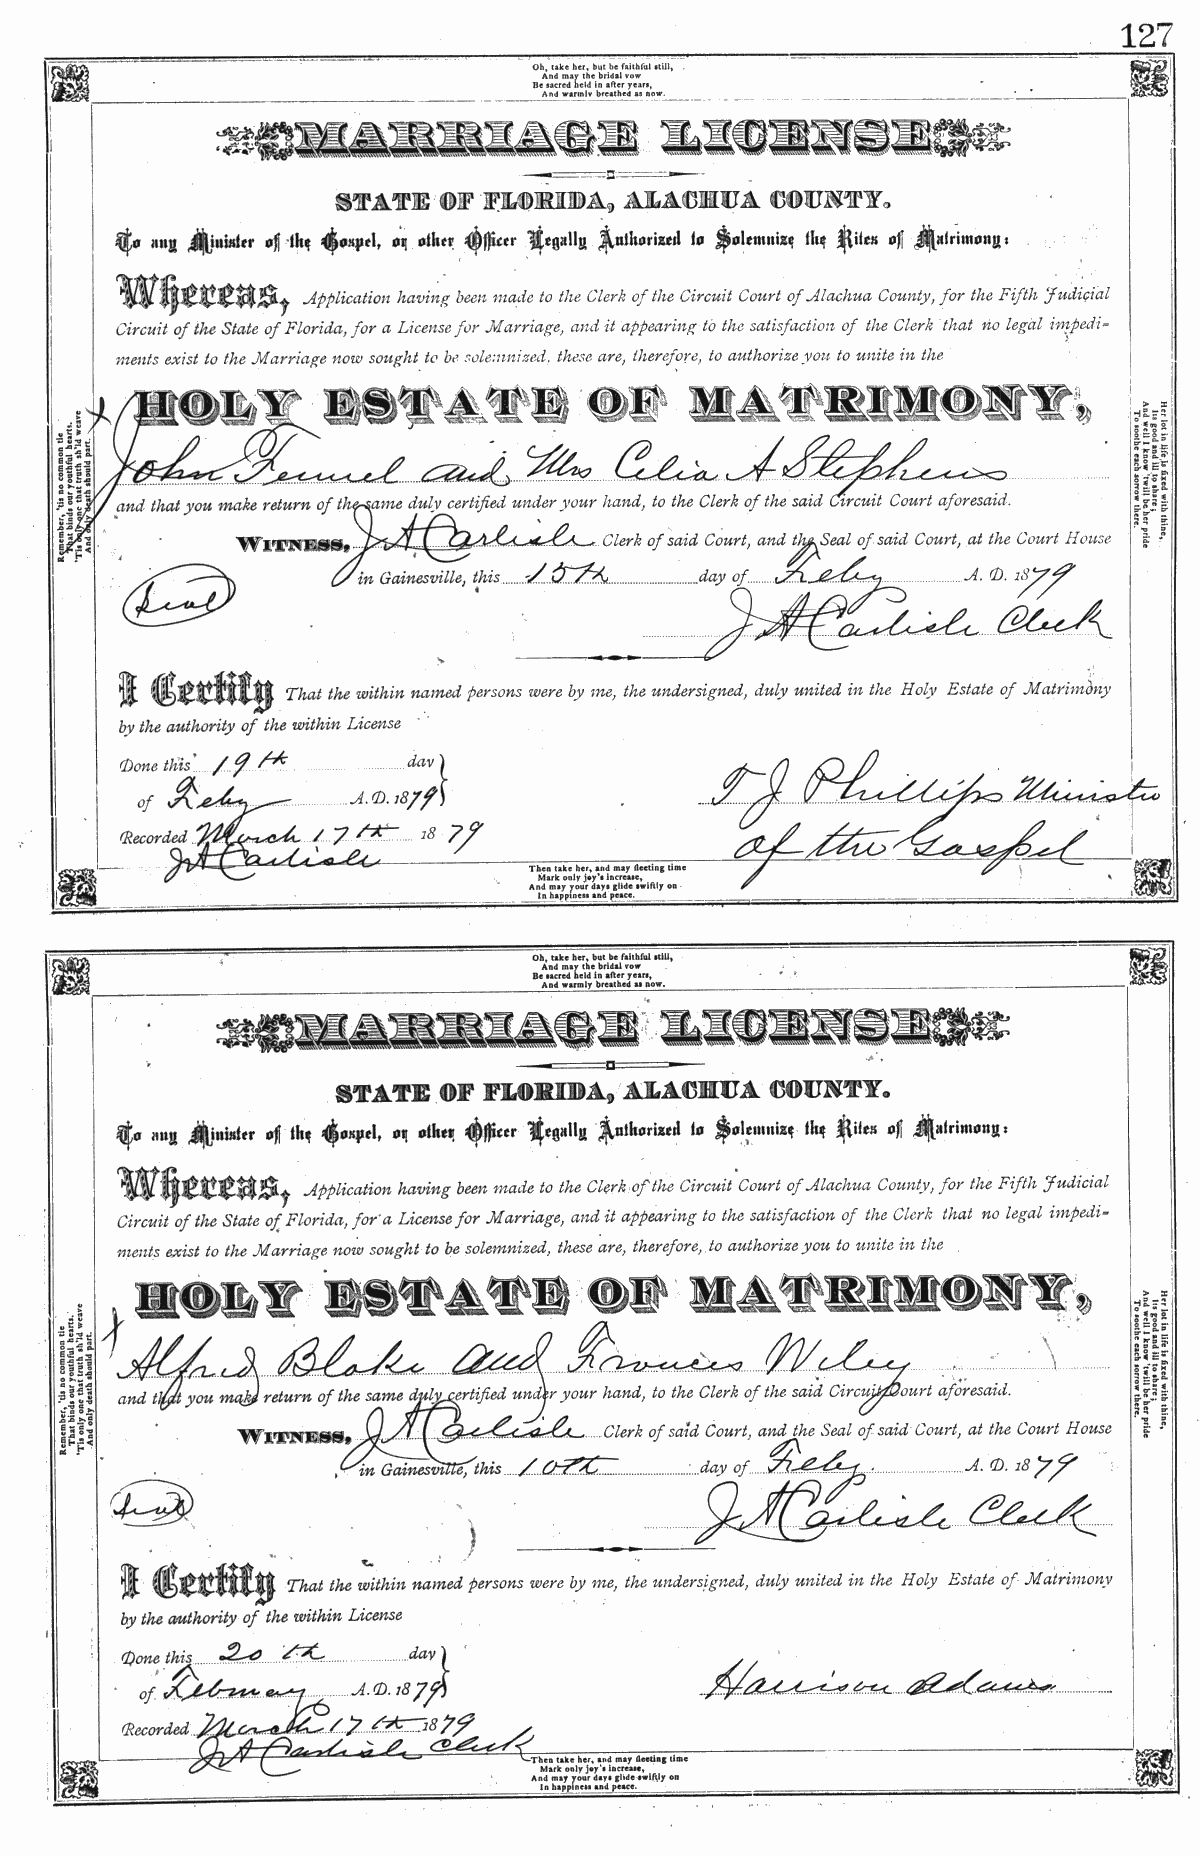 127
Oh, take her, but be faithful still,
And may the bridal vow
Be sacred held in after years,
And warmly breathed as now.
MARRIAGE LICENSE
STATE OF FLORIDA, ALACHUA COUNTY.
To any Minister of the Gospel, or other Officer Legally Authorized to Solemnize the Rites of Matrimony:
Whereas, Application having been made to the Clerk of the Circuit Court of Alachua County, for the Fifth Judicial
Circuit of the State of Florida, for a License for Marriage, and it appearing to the satisfaction of the Clerk that no legal impedi=
ments exist to the Marriage now sought to be solemnized, these are, therefore, to authorize you to unite in the
HOLY ESTATE OF MATRIMONY,
John Fennel and Mrs Celia A Stephens
and that you make return of the same duly certified under your hand, to the Clerk of the said Circuit Court aforesaid.
WITNESS, J A Carlisle Clerk of said Court, and the Seal of said Court, at the Court House
in Gainesville, this 15th day of Feby A. D. 1879
Seal
J A Carlisle Clerk
I Certify That the within named persons were by me, the undersigned, duly united in the Holy Estate of Matrimony
by the authority of the within License
Done this 19th day
of Feby A. D. 1879
T J Phillips Minister
of the Gospel
Recorded March 17th 1879
J A Carlisle
Then take her, and may fleeting time
Mark only joy's increase,
And may your days glide swiftly on
In happiness and peace.
Remember, 'tis no common tie
That binds our youthful hearts,
'Tis only one that truth sh'ld weave
And only death should part.
Her lot in life is fixed with thine,
Its good and ill to share;
And well I know 'twill be her pride
To soothe each sorrow there.
Oh, take her, but be faithful still,
And may the bridal vow
Be sacred held in after years,
And warmly breathed as now.
MARRIAGE LICENSE
STATE OF FLORIDA, ALACHUA COUNTY.
To any Minister of the Gospel, or other Officer Legally Authorized to Solemnize the Rites of Matrimony:
Whereas, Application having been made to the Clerk of the Circuit Court of Alachua County, for the Fifth Judicial
Circuit of the State of Florida, for a License for Marriage, and it appearing to the satisfaction of the Clerk that no legal impedi=
ments exist to the Marriage now sought to be solemnized, these are, therefore, to authorize you to unite in the
HOLY ESTATE OF MATRIMONY,
Alfred Blake and Frances Wiley
and that you make return of the same duly certified under your hand, to the Clerk of the said Circuit Court aforesaid.
WITNESS, J A Carlisle Clerk of said Court, and the Seal of said Court, at the Court House
in Gainesville, this 10th day of Feby. A. D. 1879
Seal
J A Carlisle Clerk
I Certify That the within named persons were by me, the undersigned, duly united in the Holy Estate of Matrimony
by the authority of the within License
Done this 20th day
of February A. D. 1879
Harrison Adams
Recorded March 17th 1879
J A Carlisle Clerk
Then take her, and may fleeting time
Mark only joy's increase,
And may your days glide swiftly on
In happiness and peace.
Remember, 'tis no common tie
That binds our youthful hearts,
'Tis only one that truth sh'ld weave
And only death should part.
Her lot in life is fixed with thine,
Its good and ill to share;
And well I know 'twill be her pride
To soothe each sorrow there.